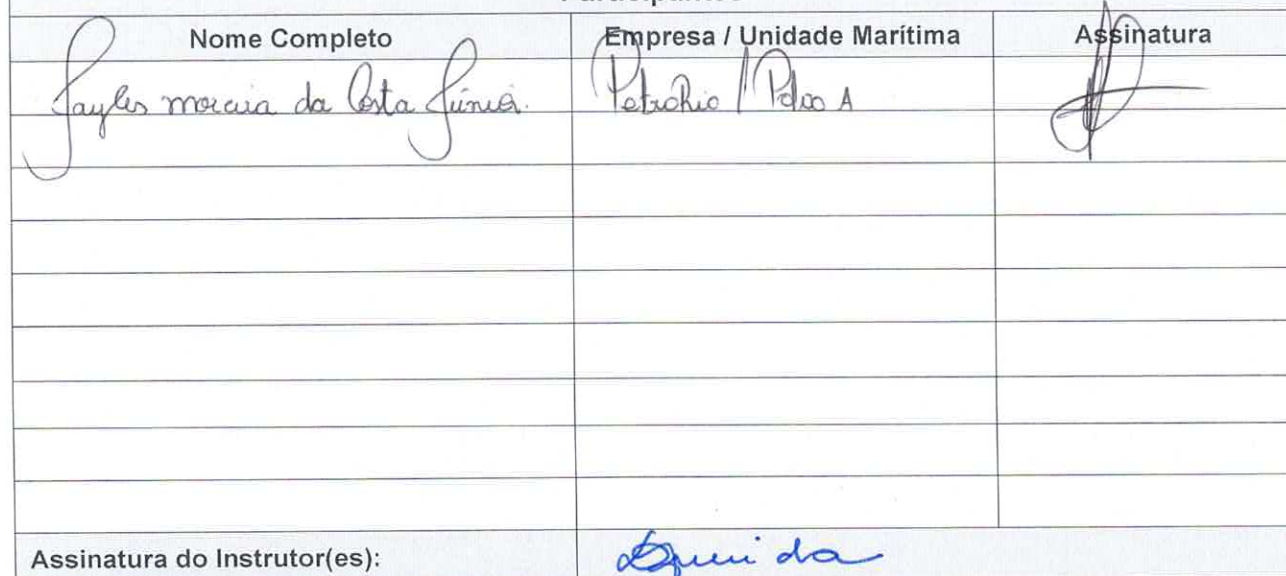 Nome Completo Empresa / Unidade Marítima Assinatura
da Costa Júnior. PetroRio / Polvo A
Assinatura do Instrutor(es):